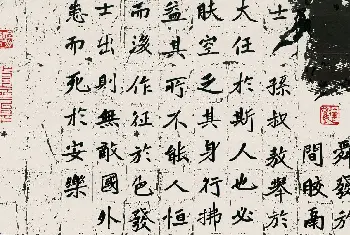 舜發於
間膠鬲
士孫叔敖舉於
大任於斯人也必
膚空乏其身行拂
益其所不能人恒
而後作征於色發
士出則無敵國外
患而死於安樂